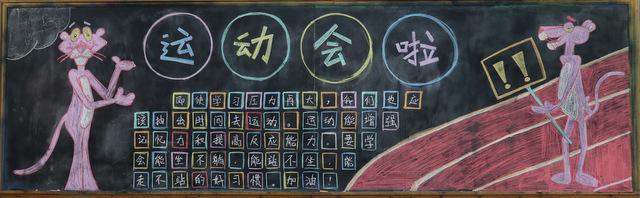 运动会啦
!!
即使学习压力再大,我们也应
该抽出时间去运动。运动能增强
记忆力和提高反应能力。要学
会能坐不躺,能站不坐,能
走不站的好习惯。加油!